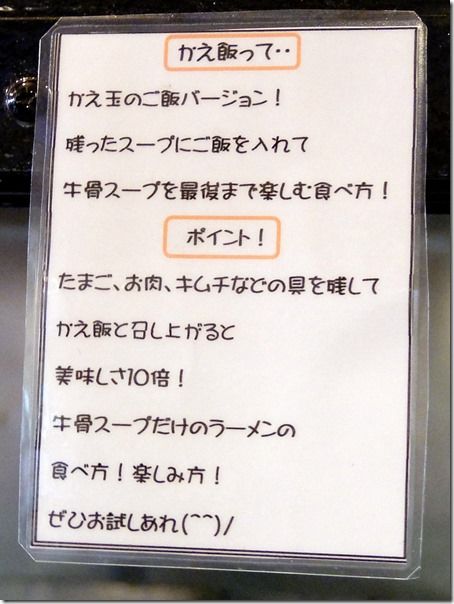 かえ飯って‥
かえ玉のご飯バージョン！
残ったスープにご飯を入れて
牛骨スープを最後まで楽しむ食べ方！
ポイント！
たまご、お肉、キムチなどの具を残して
かえ飯と召し上がると
美味しさ10倍！
牛骨スープだけのラーメンの
食べ方！楽しみ方！
ぜひお試しあれ(^^)/